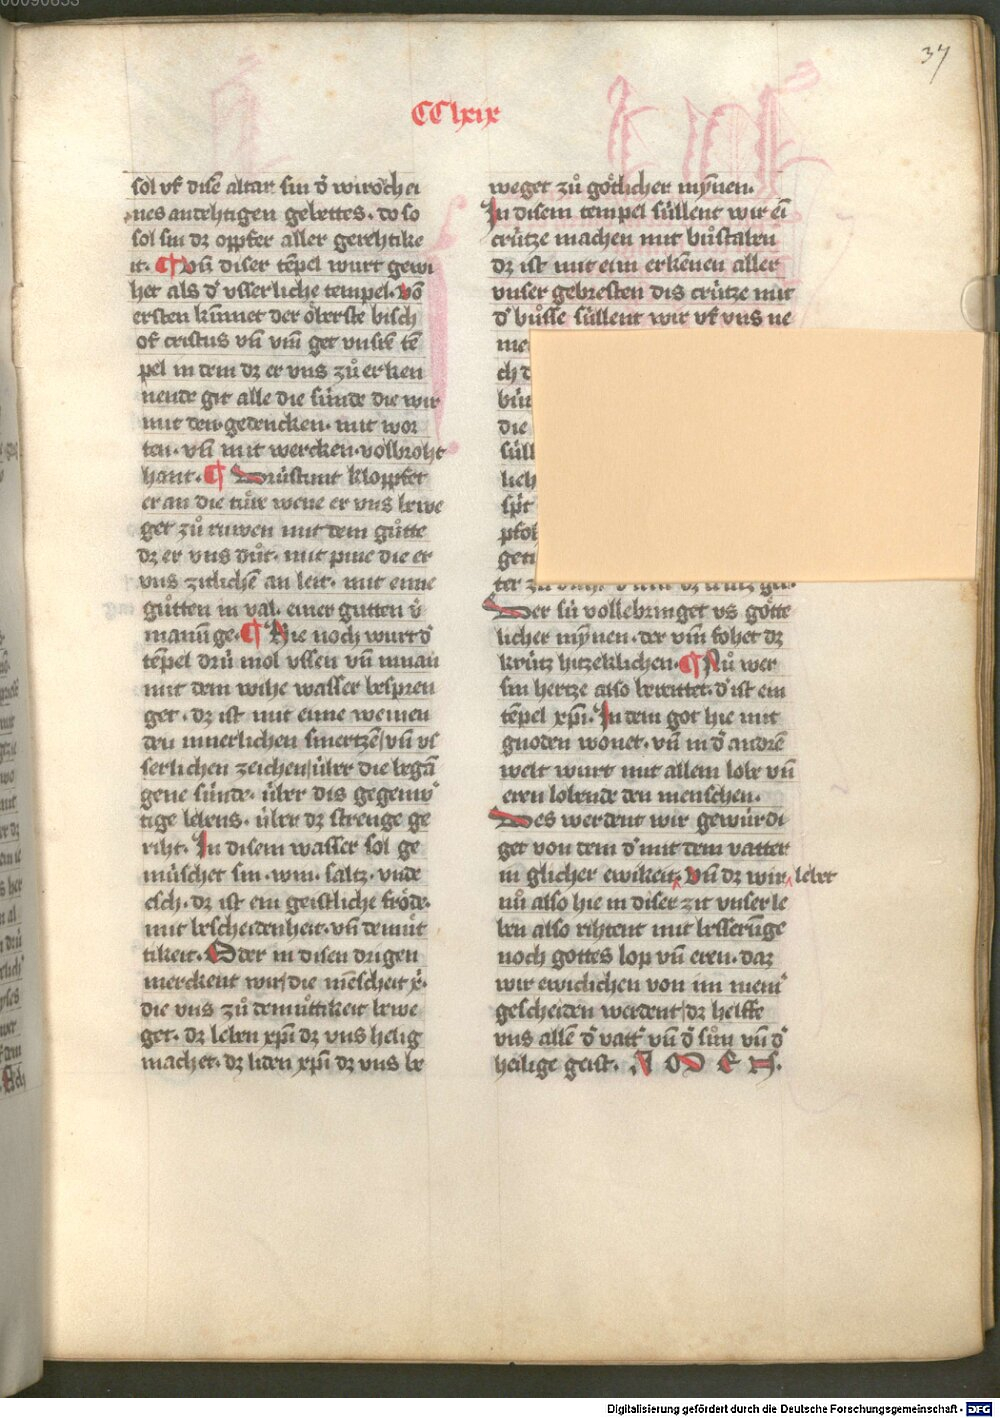 37
CClxix
sol vf disē altar sin d᷑ wiroͮch ei
nes andehtigen gebettes · do so
sol sin dz oppfer aller gerehtike
it · ¶ Vn̄ diser tēpel wurt gewi
het als d᷑ vsserliche tempel · võ
ersten kūmet der oͤberste bisch
of cristus vn̄ vm̄ get vnsrē tē
pel in dem dz er vns zuͦ erken
nende git alle die súnde die wir
mit den gedencken · mit wor
ten · vn̄ mit wercken volbroht
hant · ¶ Drústunt klopffet
er an die túre wene er vns bewe
get zuͦ ruwen mit dem guͤtte
dz er vns duͦt · mit pine die er
vns zitlichē an leit · mit eime
guͤtten in val · einer gutten v᷑
manūge · ¶ Hie noch wurt d᷑
tēpel drú mol vssen vn̄ innan
mit dem wihe wasser bespren
get · dz ist mit eime weinen
den innerlichen smertzē vn̄ vs
serlichen zeichen úber die began
gene súnde · úber dis gegenwᷓ
tige lebens · úber dz strenge ge
riht · In disem wasser sol ge
múschet sin · win · saltz · vnde
esch · dz ist ein geistliche froͤde ·
mit bescheidenheit · vn̄ demuͤt
tikeit · Oder in disen drigen
merckent wir die mēscheit xᷓ ·
die vns zuͦ demuͤttikeit bewe
get · dz leben xp̄i dz vns heilig
machet · dz liden xp̄i dz vns be
weget zuͦ goͤtlicher mȳnen ·
In disem tempel súllent wir eī
crútze machen mit buͦstaben
dz ist mit eim erkēnen aller
vnser gebresten dis crútze mit
d᷑ buͦsse súllent wir vf vns ne
Der sú vollebringet vs goͤtte
licher mȳnen · der vm̄ fohet dz
krútz hitzeklichen · ¶ Nuͦ wer
sin hertze also bereittet · d᷑ ist ein
tēpel xp̄i · In dem got hie mit
gnoden wonet · vn̄ in d᷑ andrē
welt wurt mit allem lobe vn̄
eren lobende den menschen ·
Des werdent wir gewúrdi
get von dem d᷑ mit dem vatter
in glicher ewikeit · Vn̄ dz wir lebet
nuͦ also hie in diser zit vnser le
ben also rihtent mit besserūge
noch gottes lop vn̄ eren · daz
wir ewiclichen von im niem᷑
gescheiden werdent dz helffe
vns allē d᷑ vatt᷑ vn̄ d᷑ suͦn vn̄ d᷑
heilige geist · A M E N ·
Digitalisierung gefördert durch die Deutsche Forschungsgemeinschaft - DFG